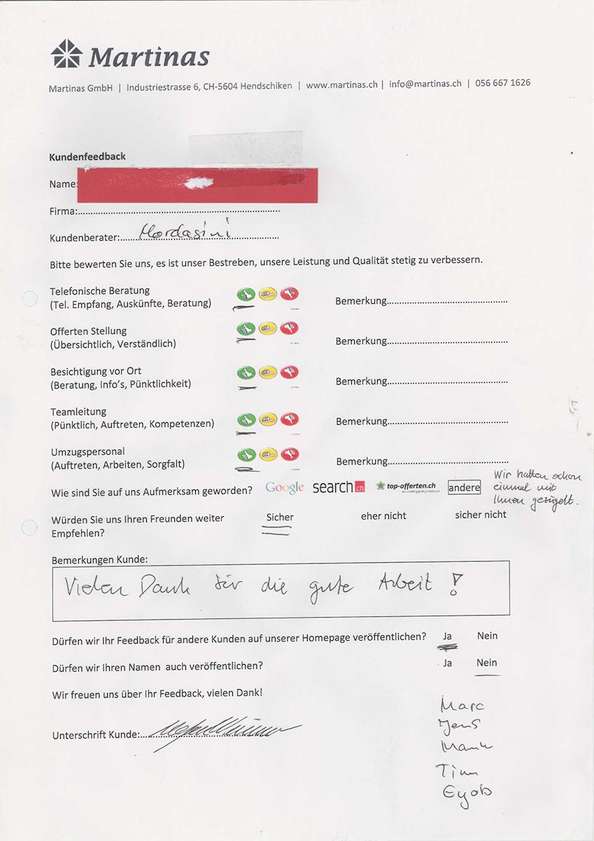 Martinas
Martinas GmbH | Industriestrasse 6, CH-5604 Hendschiken | www.martinas.ch | info@martinas.ch | 056 667 1626
Kundenfeedback
Name:
Firma:
Kundenberater: Mordasini
Bitte bewerten Sie uns, es ist unser Bestreben, unsere Leistung und Qualität stetig zu verbessern.
Telefonische Beratung
(Tel. Empfang, Auskünfte, Beratung)
Bemerkung
Offerten Stellung
(Übersichtlich, Verständlich)
Bemerkung
Besichtigung vor Ort
(Beratung, Info's, Pünktlichkeit)
Bemerkung
Teamleitung
(Pünktlich, Auftreten, Kompetenzen)
Bemerkung
Umzugspersonal
(Auftreten, Arbeiten, Sorgfalt)
Bemerkung
Wie sind Sie auf uns Aufmerksam geworden? Google search.ch top-offerten.ch andere
Wir hatten schon
einmal mit
Ihnen gezügelt.
Würden Sie uns Ihren Freunden weiter
Empfehlen?
Sicher eher nicht sicher nicht
Bemerkungen Kunde:
Vielen Dank für die gute Arbeit!
Dürfen wir Ihr Feedback für andere Kunden auf unserer Homepage veröffentlichen? Ja Nein
Dürfen wir Ihren Namen auch veröffentlichen? Ja Nein
Wir freuen uns über Ihr Feedback, vielen Dank!
Unterschrift Kunde:
Marc
Jens
Tim
Eyob